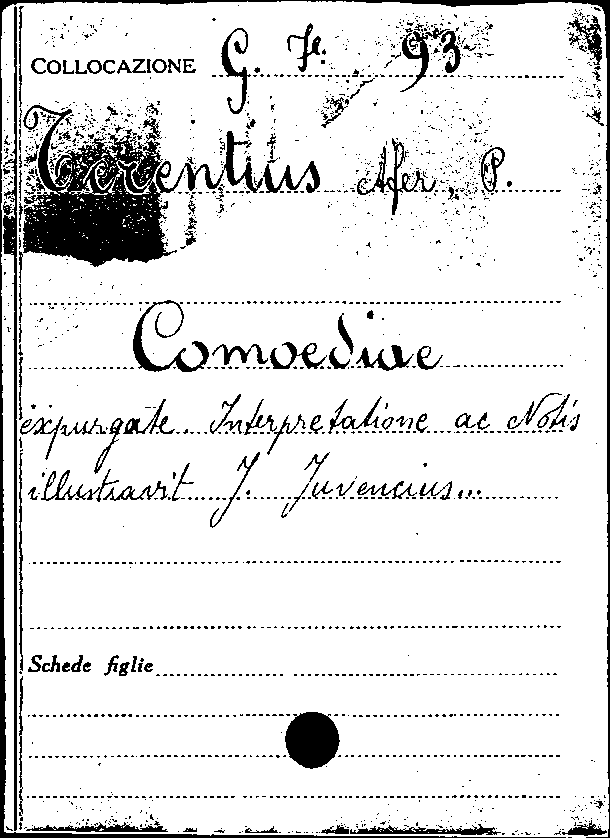 COLLOCAZIONE G. Je. 93
Terentius Afer, P.
Comoediae
expurgate. Interpretatione ac Notis
illustravit J. Juvencius...
Schede figlie